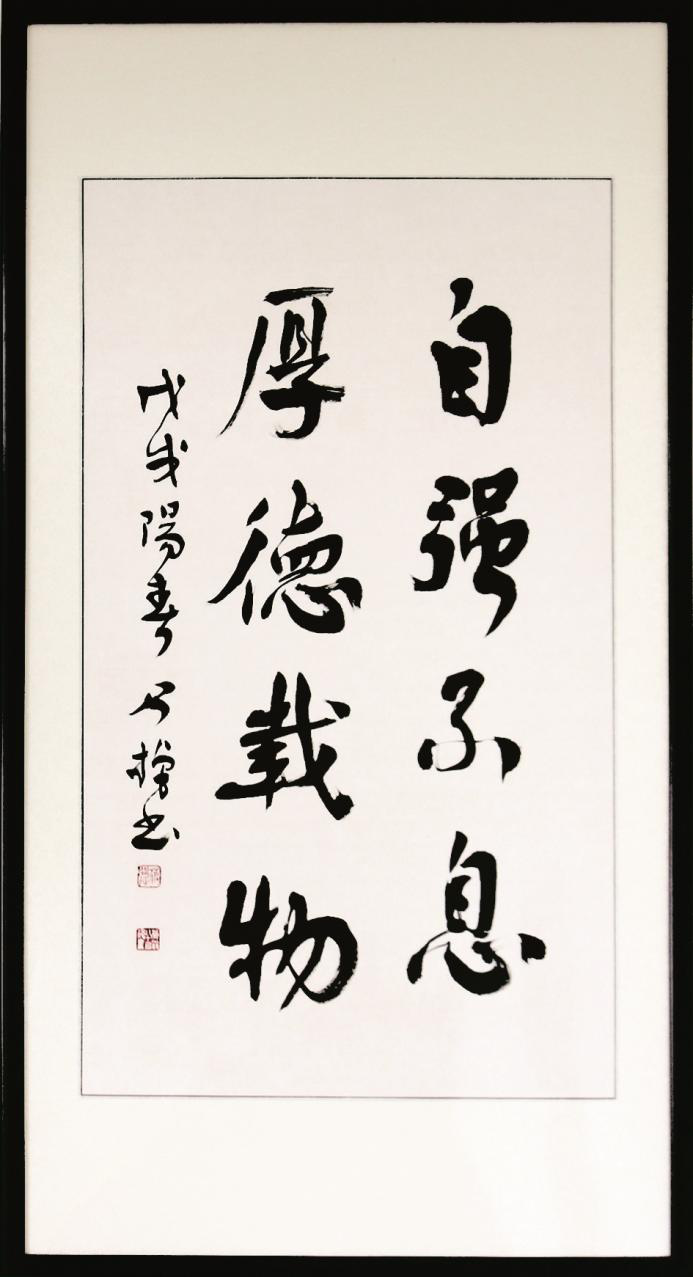 自强不息
厚德载物
戊戌陽春 書